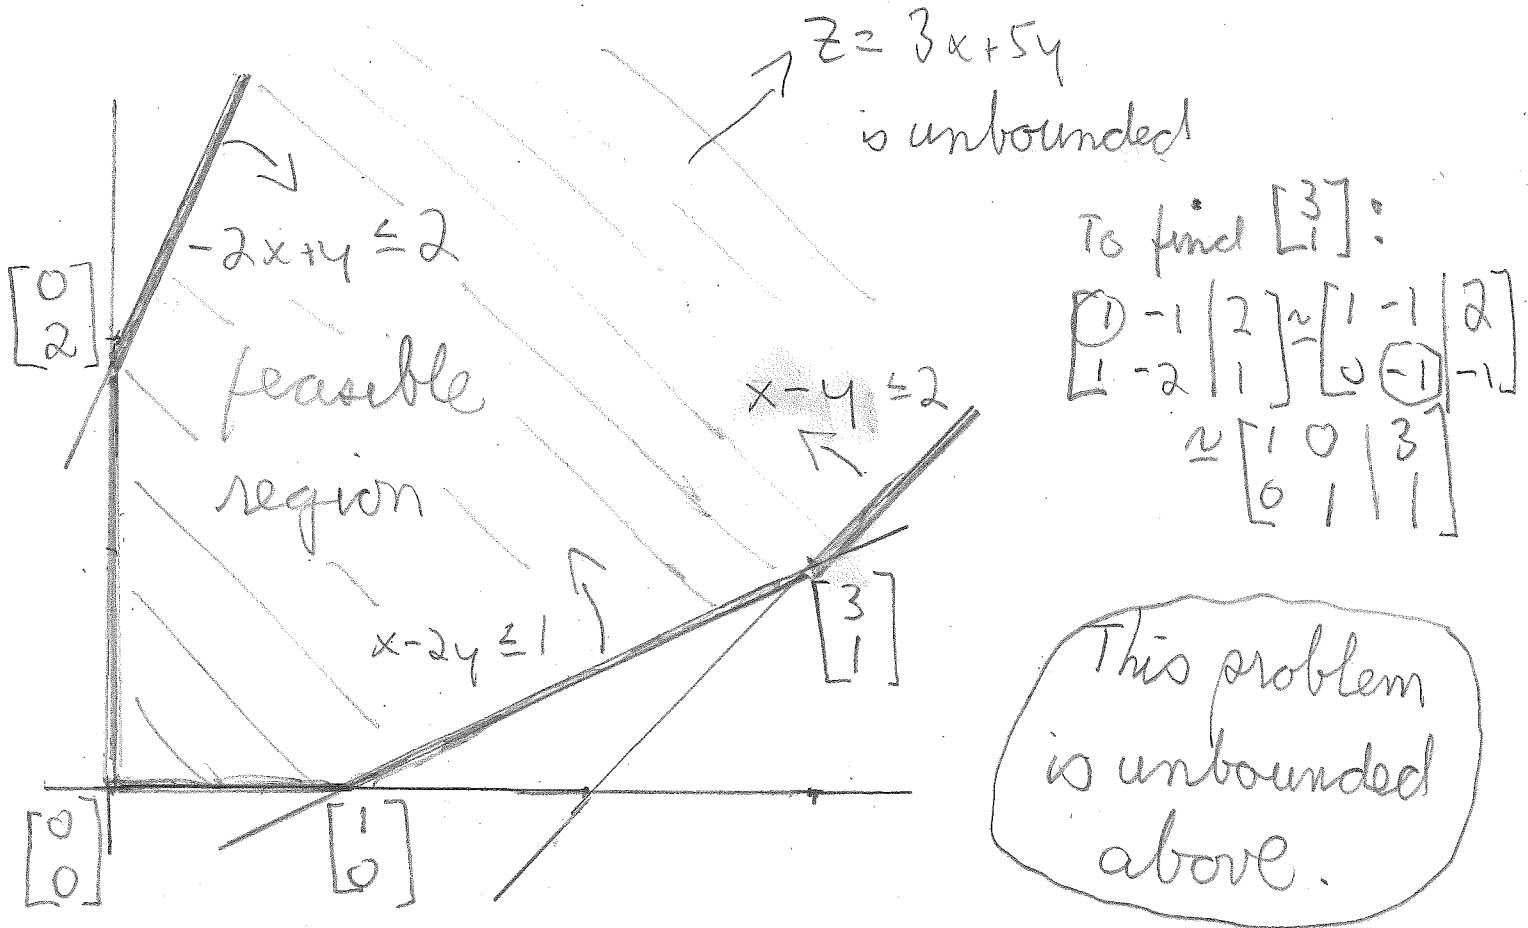 z = 3x+5y
is unbounded
-2x+y ≤ 2
[0
2]
feasible
region
x-y ≤ 2
x-2y ≤ 1
[3
1]
[0
0]
[1
0]
To find [3
1]:
[1 -1 | 2] ≃ [1 -1 | 2]
[1 -2 | 1] [0 -1 | -1]
≃ [1 0 | 3]
[0 1 | 1]
This problem
is unbounded
above.